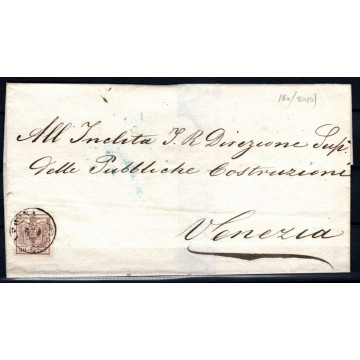 (60/2010)
All' Inclita I. R. Direzione Sup.
delle Pubbliche Costruzioni
Venezia
VERONA